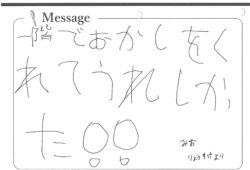 Message
一階でおかしをく
れてうれしか
た!!
みお
りょうすけより